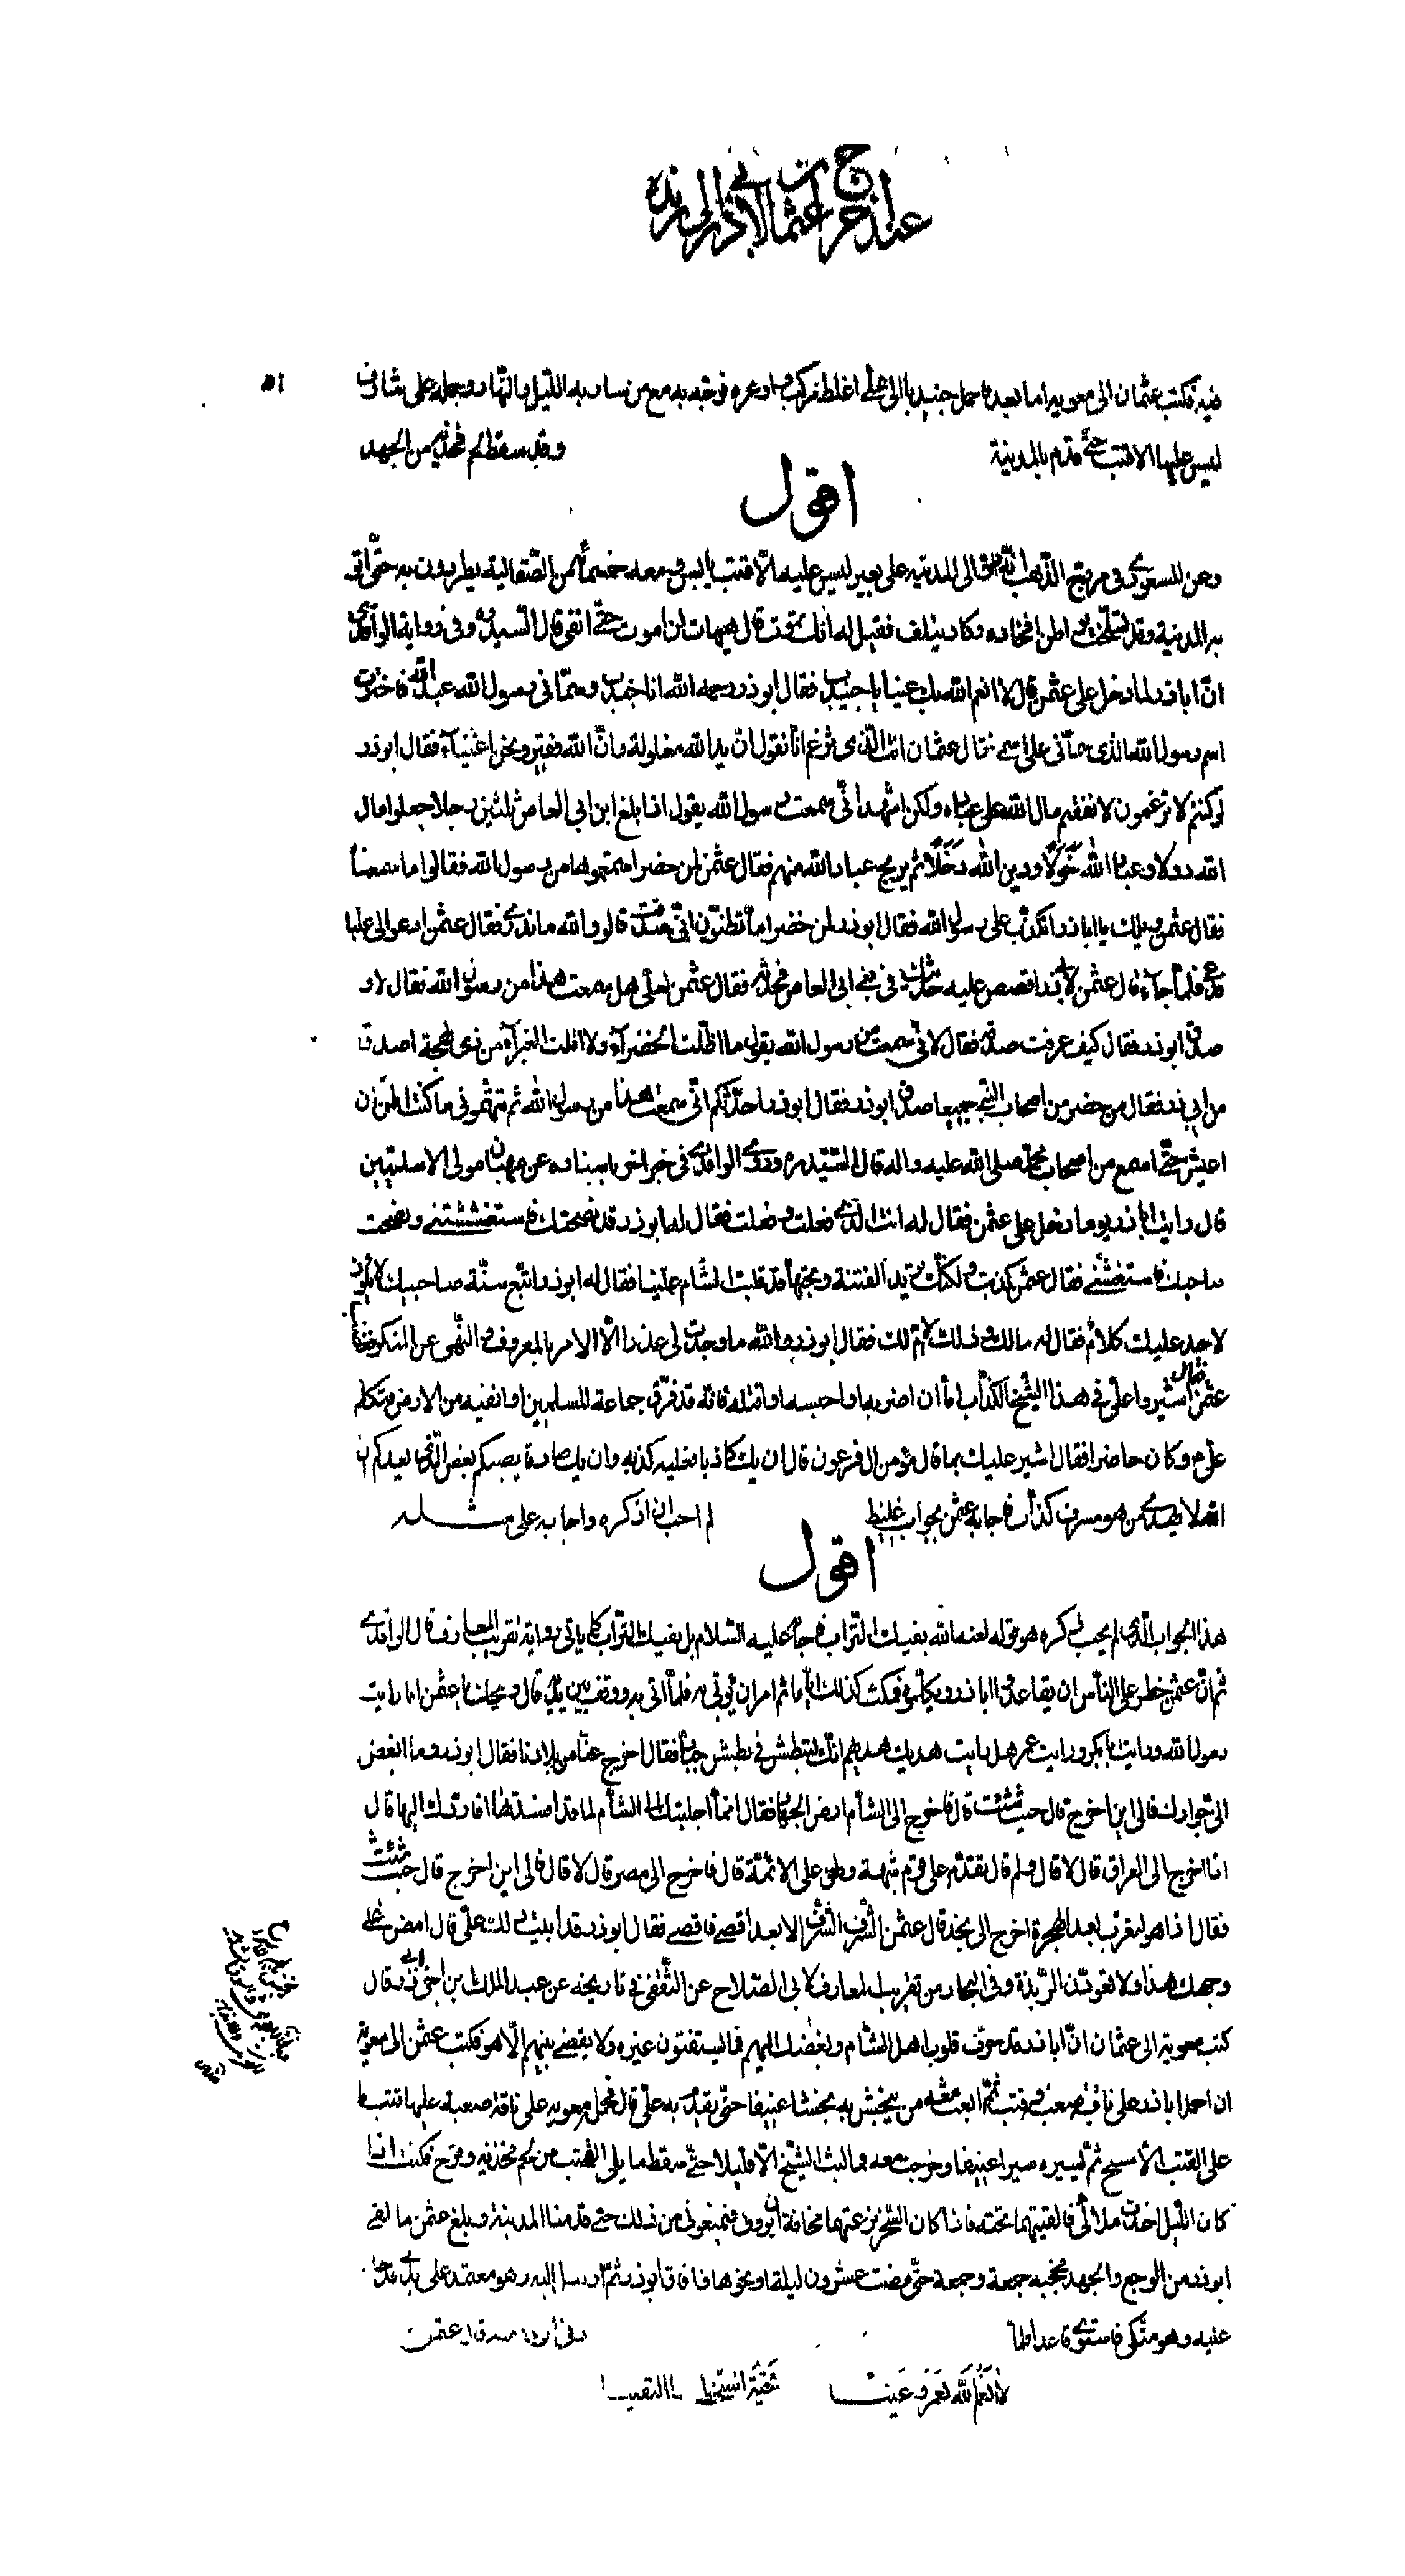 عند اخراج عثمان اباذر الى ربذه
فيه فكتب عثمان الى معوية اما بعد فاحمل جنيدبا الى على اغلظ مركب واوعره فوجه به مع من سار به الليل والنهار وحمله على شارف
ليس عليها الا قتب حتى قدم بالمدينة وقد سقط لحم فخذيه من الجهد
اقول
وعن المسعودي في مروج الذهب انه حمل الى المدينة على بعير ليس عليه الا قتب يابس ومعه خمسمائة من الصقالبة يطردون به حتى اتو
به المدينة وقد تسلخت بواطن افخاذه وكاد يتلف فقيل له انك تموت قال هيهات لن اموت حتى انفى قال السيد ره وفى رواية الواقدى
ان اباذر لما دخل على عثمن قال لا انعم الله بك عينا يا جنيدب فقال ابوذر رحمه الله انا جندب وسمانى رسول الله عبد الله فاخترت
اسم رسول الله الذى سمانى على اسمى فقال عثمان انت الذى تزعم انا نقول ان يد الله مغلولة وان الله فقير ونحن اغنياء فقال ابوذر
لو كنتم لا تزعمون لانفقتم مال الله على عباده ولكن اشهد انى سمعت رسول الله يقول اذا بلغ ابن ابى العاص ثلثين رجلا جعلوا مال
الله دولا وعباد الله خولا ودين الله دخلا ثم يريح عباد الله منهم فقال عثمن لمن حضر اسمعتموها من رسول الله فقالوا ما سمعنا
فقال عثمن ويلك يا اباذر اتكذب على رسول الله فقال ابوذر لمن حضر اما تظنون انى صدقت قالو والله ما ندرى فقال عثمن ادعو الى عليا
فدعى فلما جاء قال عثمن لابى ذر اقصص عليه حديثك فى بنى ابى العاص فحدثه فقال عثمن لعلى هل سمعت هذا من رسول الله فقال لا و
صدق ابوذر فقال كيف عرفت صدقه فقال لانى سمعت من رسول الله يقول ما اظلت الخضراء ولا اقلت الغبراء من ذى لهجة اصدق
من ابى ذر فقال من حضر من اصحاب النبى جميعا صدق ابوذر فقال ابوذر احدثكم انى سمعت هذا من رسول الله ثم تتهمونى ما كنت اظن ان
اعيش حتى اسمع من اصحاب محمد صلى الله عليه واله قال السيد ره وروى الواقدى فى خبر اخر باسناده عن صهبان مولى الاسلميين
قال رايت اباذر يوما دخل على عثمن فقال له انت الذى فعلت وفعلت فقال له ابوذر قد نصحتك فاستغششتنى ونصحت
صاحبك فاستغشنى فقال عثمن كذبت ولكنك تريد الفتنة وتحبها قد قلبت الشام علينا فقال له ابوذر اتبع سنة صاحبيك لا يكون
لاحد عليك كلام فقال له مالك ولذلك لا ام لك فقال ابوذر والله ما وجدت لى عذرا الا الامر بالمعروف والنهى عن المنكر فغضب
عثمن فقال اشيروا على فى هذا الشيخ الكذاب اما ان اضربه او احبسه او اقتله فانه قد فرق جماعة المسلمين او انفيه من الارض فتكلم
على م وكان حاضرا فقال اشير عليك بما قال مؤمن ال فرعون قال ان يك كاذبا فعليه كذبه وان يك صادقا يصبكم بعض الذى يعدكم ان
الله لا يهدى من هو مسرف كذاب فاجابه عثمن بجواب غليظ لم احب ان اذكره واجابه على مثله
اقول
هذا الجواب الذى لم يحب ذكره هو قوله لعنه الله بفيك التراب فاجابه عليه السلام بل بفيك التراب كما ياتى رواية تقريب المعارف قال الواقدى
ثم ان عثمن حظر على الناس ان يقاعدوا اباذر ويكلموه فمكث كذلك اياما ثم امر ان يؤتى به فلما اتى به ووقف بين يديه قال ويحك يا عثمن اما رايت
رسول الله ورايت ابابكر ورايت عمر هل رايت هديك هديهم انك لتبطش فى بطش جبار فقال اخرج عنا من بلادنا فقال ابوذر وما ابغض
الى جوارك فالى اين اخرج قال حيث شئت قال فاخرج الى الشام ارض الجهاد فقال انما جلبتك من الشام لما قد افسدتها افاردك اليها قال
افاخرج الى العراق قال لا قال ولم قال تقدم على قوم شبهة وطعن على الائمة قال فاخرج الى مصر قال لا قال فالى اين اخرج قال حيث شئت
فقال اذا هو التعرب بعد الهجرة اخرج الى نجد قال عثمن الشرف الشرف الا بعد اقصى فاقصى فقال ابوذر قد ابيت ذلك على قال امض على
وجهك هذا ولا تعودن الربذة وفى البحار من تقريب المعارف لابى الصلاح عن الثقفى فى تاريخه عن عبد الملك بن اخى ابى ذر قال
كتب معوية الى عثمان ان اباذر قد حرف قلوب اهل الشام وبغضك اليهم فما يستفتون غيره ولا يقضى بينهم الا هو فكتب عثمن الى معوية
ان احمل اباذر على ناب صعب وقتب ثم ابعث معه من ينخش به نخشا عنيفا حتى يقدم به على قال فحمله معوية على ناقة صعبة عليها قتب ما
على القتب الا مسح ثم سيره سيرا عنيفا وخرجت معه فما لبث الشيخ الا قليلا حتى سقط ما يلى القتب من لحم فخذيه وقرح فكنت اذا
كان الليل اخذت ملائى فالقيتهما تحته فاذا كان السحر نزعتهما مخافة ان يرونى فيمنعونى من ذلك حتى قدمنا المدينة وبلغ عثمن ما لقى
ابوذر من الوجع والجهد فحجبه جمعة وجمعة حتى مضت عشرون ليلة او نحوها وافاق ابوذر ثم ارسل اليه وهو معتمد على يدى فدخلنا
عليه وهو متكى فاستوى قاعدا فلما دنى ابوذر منه قال عثمن
لا انعم الله بعمرو عينا تحية السخط اذا التقينا